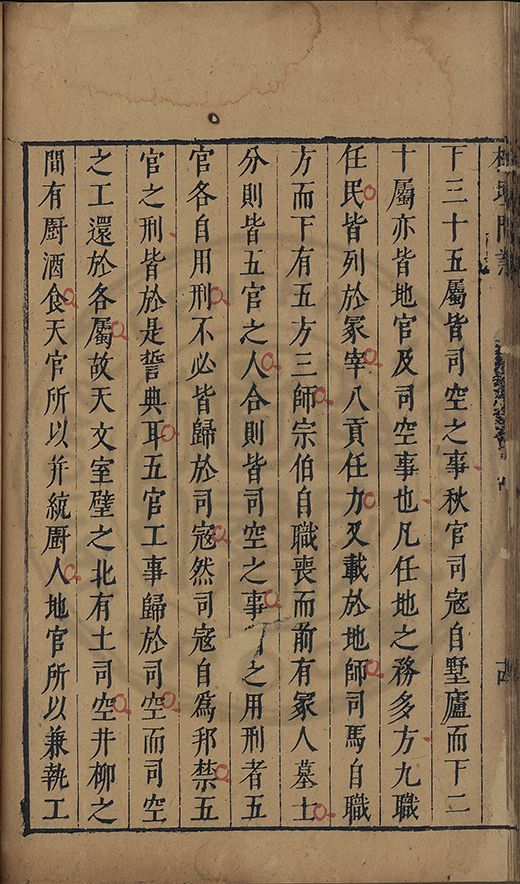 下三十五屬皆司空之事秋官司寇自墅廬而下二
十屬亦皆地官及司空事也凡任地之務多方九職
任民皆列於冢宰八貢任力又載於地師司馬自職
方而下有五方三師宗伯自職喪而前有冢人墓士
分則皆五官之人合則皆司空之事之用刑者五
官各自用刑不必皆歸於司寇然司寇自為邦禁五
官之刑皆於是誓典耳五官工事歸於司空而司空
之工還於各屬故天文室壁之北有土司空井柳之
間有厨酒食天官所以并統厨人地官所以兼執工